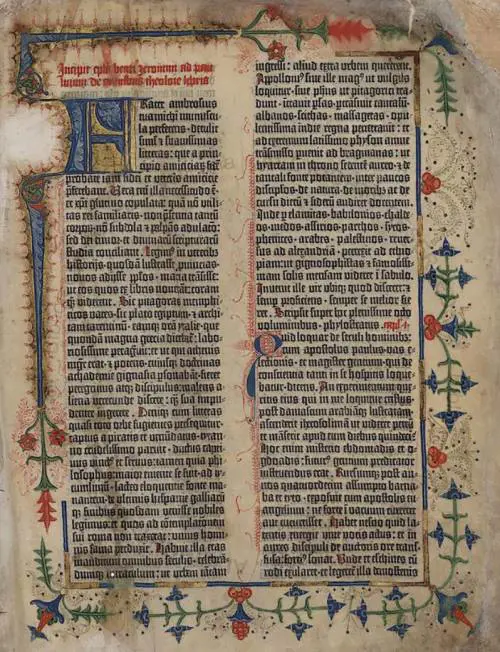 Incipit epła beati Jeronimi ad pau
linum de omnibus theologie libris
Frater ambrosius
tua michi munuscu-
la preferens · detulit
simul et suauissimas
litteras: que a prin-
cipio amiciciarum fidē
probate iam fidei et veteris amicicie
preferebant. Vera enī illa necessitudo ē ·
et xpi glutino copulata: quā nō vtili-
tas rei familiaris · non pñtia tantū
corporū · nō subdola et palpās adulaco:
sed dei timor · et diuinarū scripturarū
studia conciliant. Legim9 in veteribꝫ
historijs · quosdā lustrasse ꝓuincias ·
nouos adijsse ppłos · maria transisse:
ut eos quos ex libris nouerāt: coram
quoqꝫ viderent. Sic pitagoras memphiti-
cos vates · sic plato egiptum · et archi-
tam tarentinū · eamqꝫ orā ytalie · que
quondā magna grecia dicebat᷑: labo-
riosissime peragrauit: ut qui athenis
mgr̄ erat · et potens · cuiusqꝫ doctrinas
achademie gignasia psonabāt: fieret
peregrinus atqꝫ discipulus: malens a-
liena verecunde discere · qͣꝫ sua impu-
denter ingerere. Deniqꝫ cum litteras
quasi toto orbe fugientes persequitur ·
captus a piratis et venūdatus · tyran-
no crudelissimo paruit · ductus captiuus
vinctꝰ et seruus: tamen quia phi-
losophus maior emente se fuit. ad ty-
tum liuium · lacteo eloquentie fonte ma-
nantem · de vltimis hispanie galliarū-
qꝫ finibus quosdam venisse nobiles
legimus: et quos ad cōtemplationem
sui roma non traxerat: vnius homi-
nis fama perduxit. Habuit illa etas
inauditum omnibus seculis · celebrā-
dumqꝫ miraculum: ut vrbem tātam
ingressi: aliud extra vrbem quererent.
Apolloniꝰ siue ille magꝰ ut vulgus
loquitur · siue phūs ut pitagorici tra-
dunt · intrauit psas · ptrāsiuit caucasū ·
albanos · scithas · massagetas · opu-
lentissima indie regna penetrauit: et
ad extremum latissimo physon amne
trāsmisso puenit ad bragmanas: ut
hyarcam in throno sedentē aureo · et de
tantali fonte potantem · inter paucos
discipulos · de natura · de moribꝫ ac de
cursu dierū et siderū audiret docentem.
Inde p elamitas · babilonios · chalde-
os · medos · assirios · parthos · syros ·
phenices · arabes · palestinos · reuer-
sus ad alexandriā · perrexit ad ethio-
piam: ut gignosophistas et famosissi-
mam solis mensam videret ī sabulo.
Inuenit ille vir vbiqꝫ quod disceret: et
semp proficiens · semper se melior fie-
ret. Scripsit super hoc plenissime octo
voluminibus · phylostratus.
Quid loquar de seculi hominibus:
cum apostolus paulus · vas e-
lectionis · et magister gentium · qui de
consciencia tanti in se hospitis loque-
batur · dicens. An experimentum que-
ritis eius qui in me loquitur cristus ·
post damascum arabiāqꝫ lustratam:
ascenderit iherosolimā ut videret petrū
et māserit apud eum diebus quindeci.
Hoc enim misterio ebdomadis et o-
gdoadis: futurꝰ gentium predicator
instruendus erat. Rursumqꝫ post an-
nos quatuordecim assumpto barna-
ba et tyto · exposuit cum apostolis eu-
angelium: ne forte ī vacuum curreret
aut cucurrisset. Habet nescio quid la-
tentis energie viue vocis actus: et in
aures discipuli de auctoris ore trans-
fusa: fortiꝰ sonat. Unde et eschines cū
rodi exularet · et legeret᷑ illa demostenis